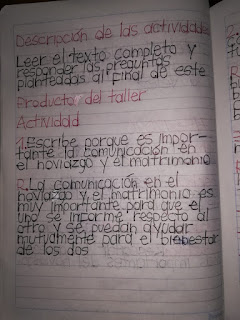 Descripción de las actividades
Leer el texto completo y
responder las preguntas
planteadas al final de este
Producto del taller
Actividad
1. Escribe porque es impor-
tante la comunicación en
el noviazgo y el matrimonio
R. La comunicación en el
noviazgo y el matrimonio es
muy importante para que el
uno se informe respecto al
otro y se puedan ayudar
mutuamente para el bienestar
de los dos